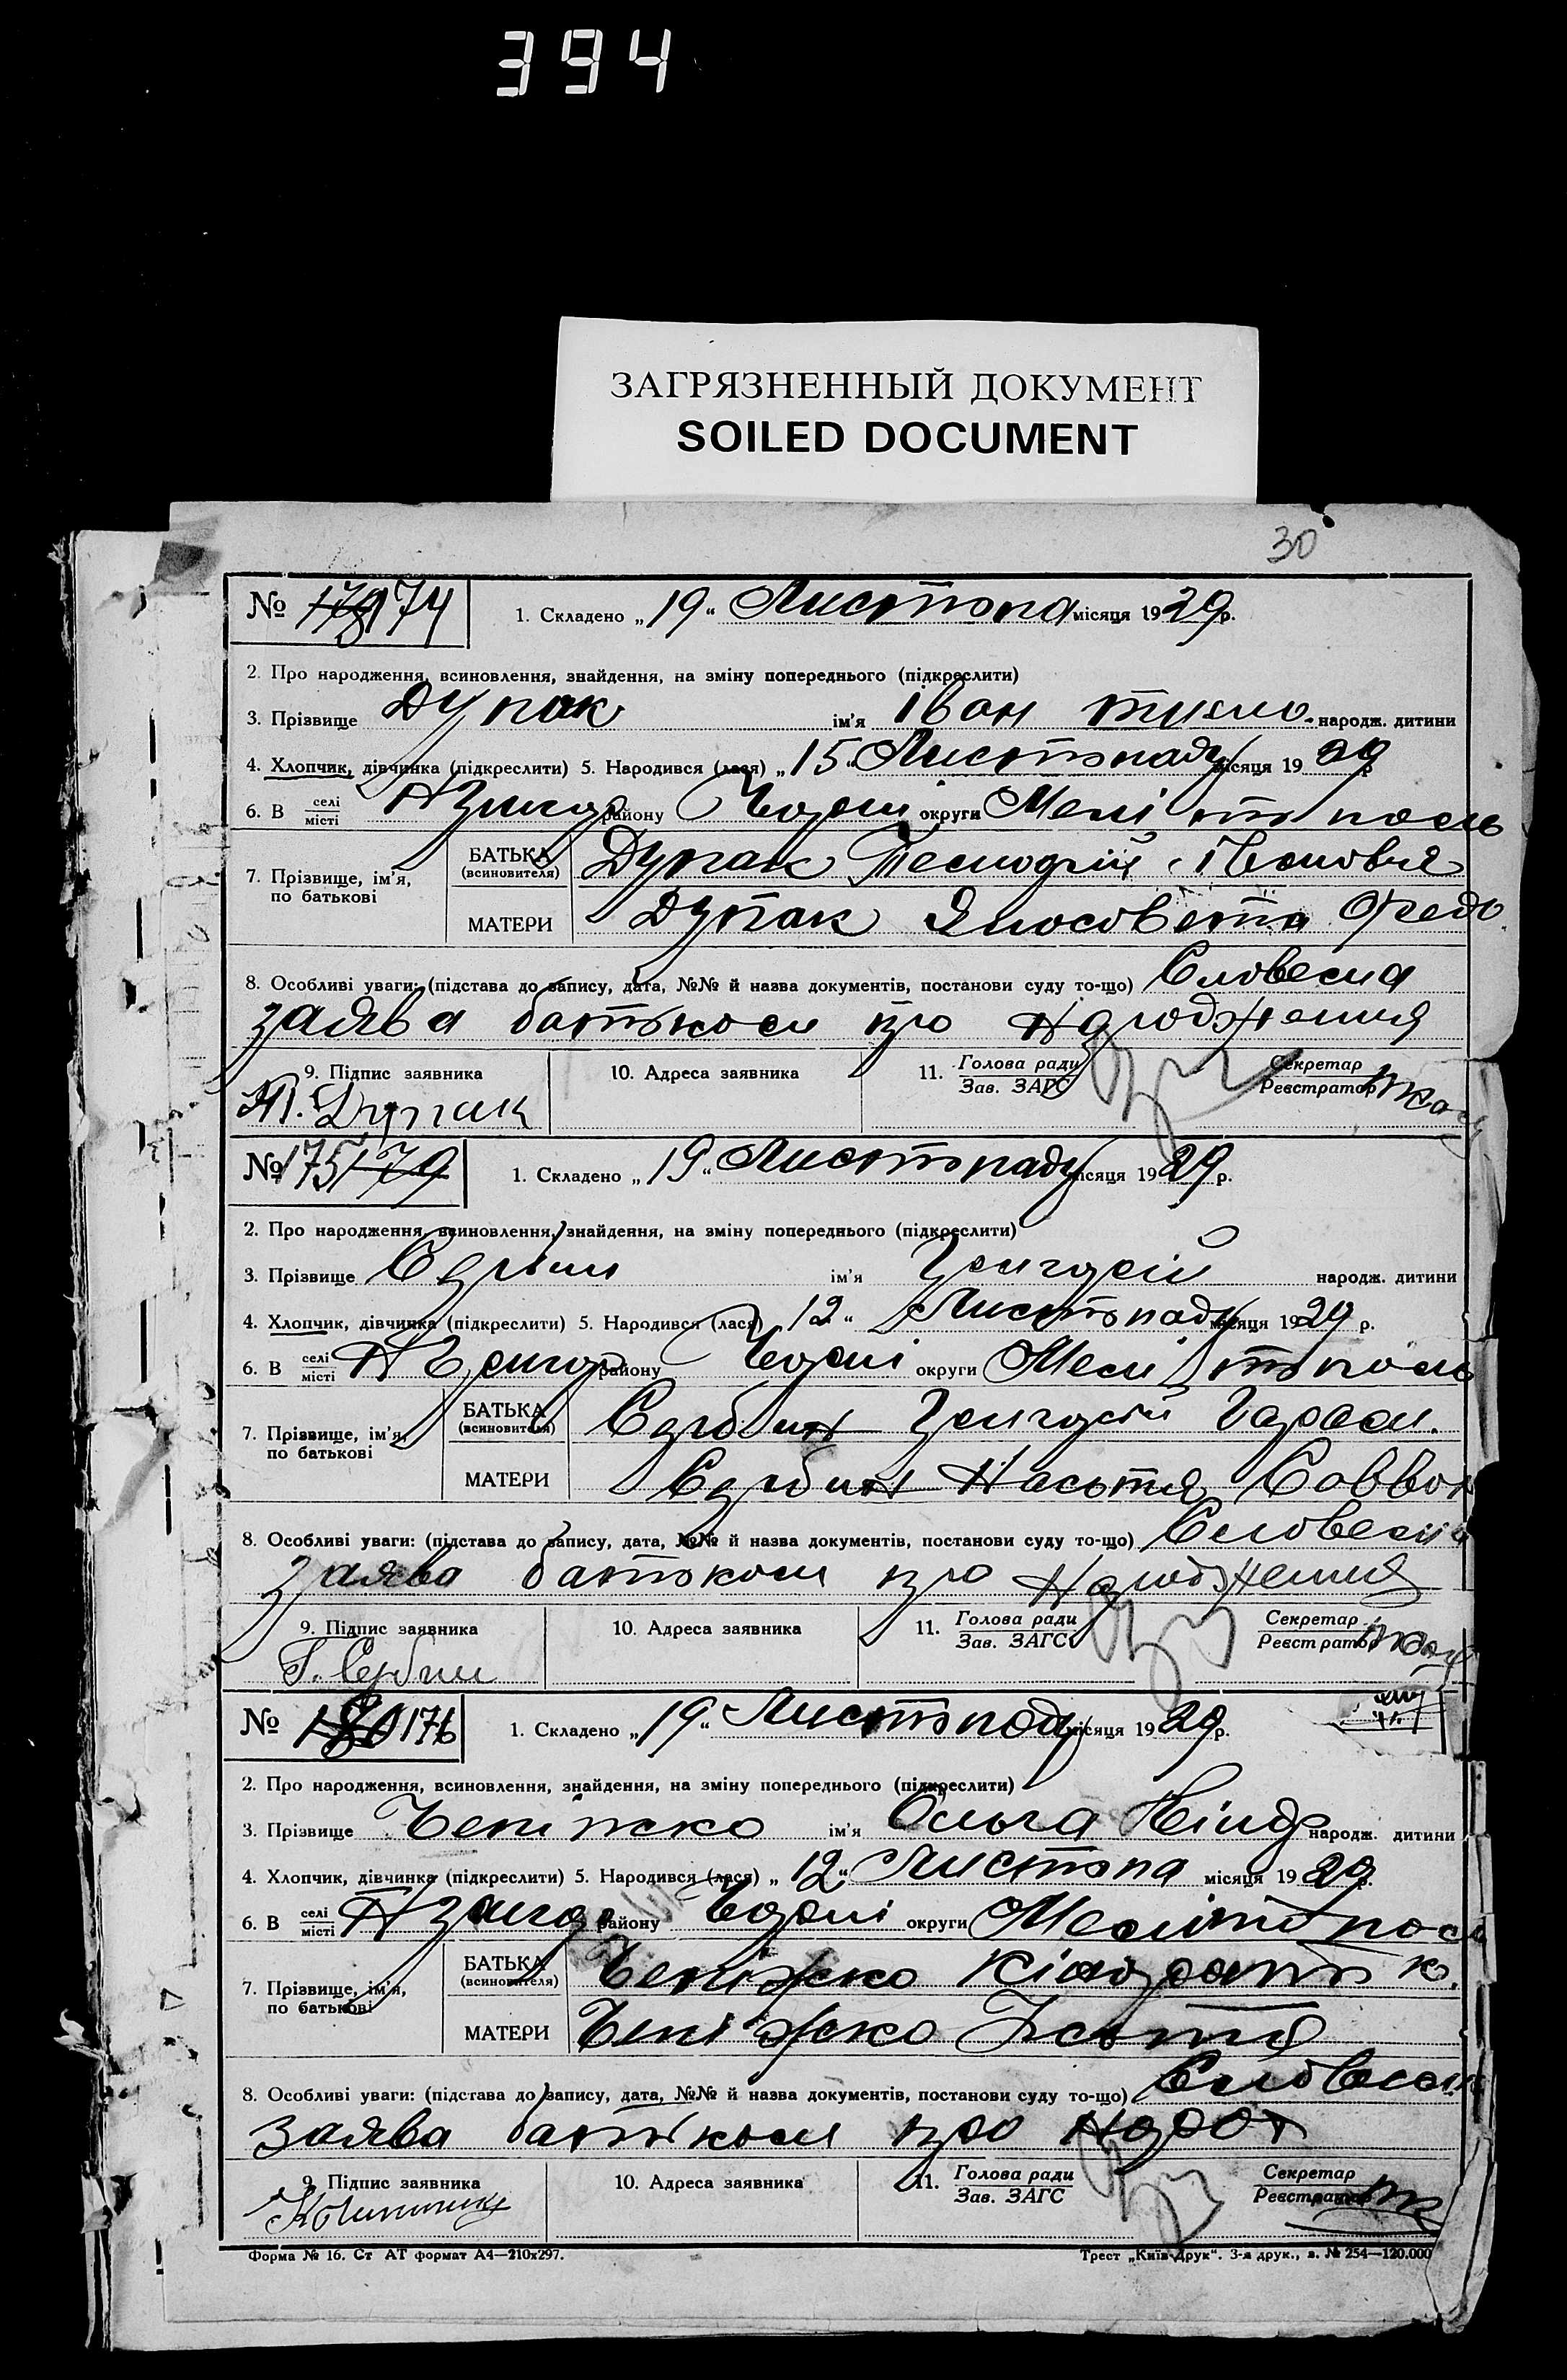 394
ЗАГРЯЗНЕННЫЙ ДОКУМЕНТ
SOILED DOCUMENT
30
№ 178 174 1. Складено „19" Листопа місяця 1929 р.
2. Про народження, всиновлення, знайдення, на зміну попереднього (підкреслити)
3. Прізвище Дупак ім'я Іван народж. дитини
4. Хлопчик, дівчинка (підкреслити) 5. Народився (лася) „15" Листопаду місяця 1929 р
6. В селі місті району округи Мелітополь
7. Прізвище, ім'я, по батькові
БАТЬКА (всиновителя) Дупак
МАТЕРИ Дупак Федо.
8. Особливі уваги: (підстава до запису, дата, №№ й назва документів, постанови суду то-що) Словесна
заява батьком про народження
9. Підпис заявника 10. Адреса заявника 11. Голова ради Зав. ЗАГС Секретар Реєстратор
Дупак
№ 175 179 1. Складено „19" Листопаду місяця 1929 р.
2. Про народження, всиновлення, знайдення, на зміну попереднього (підкреслити)
3. Прізвище Сербин ім'я Григорій народж. дитини
4. Хлопчик, дівчинка (підкреслити) 5. Народився (лася) „12" Листопаду місяця 1929 р.
6. В селі місті району округи Мелітополь
7. Прізвище, ім'я, по батькові
БАТЬКА (всиновителя) Сербин Григорій Гарас.
МАТЕРИ Сербин Настя
8. Особливі уваги: (підстава до запису, дата, №№ й назва документів, постанови суду то-що) Словесна
заява батьком про народження
9. Підпис заявника 10. Адреса заявника 11. Голова ради Зав. ЗАГС Секретар Реєстратор
Г. Сербин
№ 180 176 1. Складено „19" Листопаду місяця 1929 р.
2. Про народження, всиновлення, знайдення, на зміну попереднього (підкреслити)
3. Прізвище Чепіжко ім'я Ольга народж. дитини
4. Хлопчик, дівчинка (підкреслити) 5. Народився (лася) „12" Листопа місяця 1929 р.
6. В селі місті району округи Мелітопол
7. Прізвище, ім'я, по батькові
БАТЬКА (всиновителя) Чепіжко К.
МАТЕРИ Чепіжко
8. Особливі уваги: (підстава до запису, дата, №№ й назва документів, постанови суду то-що) Словесн
заява батьком про
9. Підпис заявника 10. Адреса заявника 11. Голова ради Зав. ЗАГС Секретар Реєстратор
Форма № 16. Ст АТ формат А4—210х297. Трест „Київ-Друк". 3-я друк., з. № 254—120.000